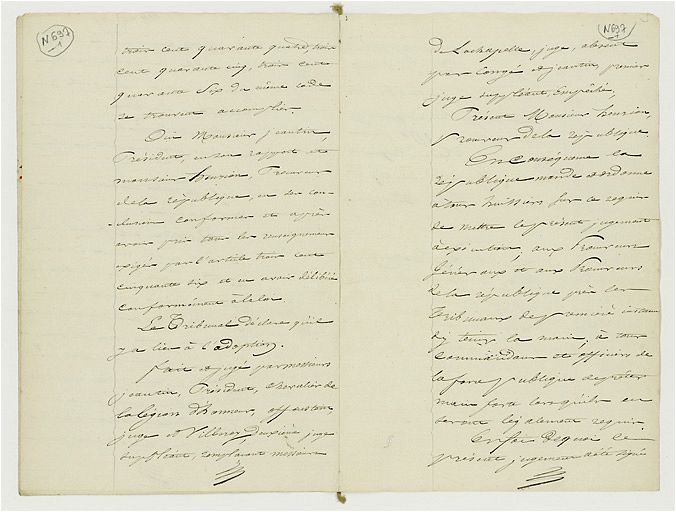 N 697
1
trois cent quarante quatre, trois
cent quarante cinq, trois cent
quarante six du même code
se trouvent accomplies
Oui Monsieur jeantin,
Président, en son rapport et
monsieur hourion, Procureur
de la république, en ses con-
-clusions conformes et après
avoir pris tous les renseignements
exigés par l'article trois cent
cinquante six et en avoir délibéré
conformément à la loi.
Le Tribunal déclare qu'il
y a lieu à l'adoption.
fait et jugé par messieurs
jeantin, Président, chevalier de
la légion d'honneur,
juge et deuxième juge
suppléant, remplaçant messieurs
N 697
1
de Lachapelle, juge, absent
par congé et jeantin, premier
juge suppléant, Empêché,
Présent Monsieur hourion,
Procureur de la république
En conséquence la
république mande et ordonne
à tous huissiers sur ce requis
de mettre le présent jugement
à exécution, aux Procureurs
généraux et aux Procureurs
de la république près les
Tribunaux de première instance
d'y tenir la main, à tous
commandants et officiers de
la force publique de prêter
main forte lorsqu'ils en
seront légalement requis.
En foi de quoi le
présent jugement a été signé